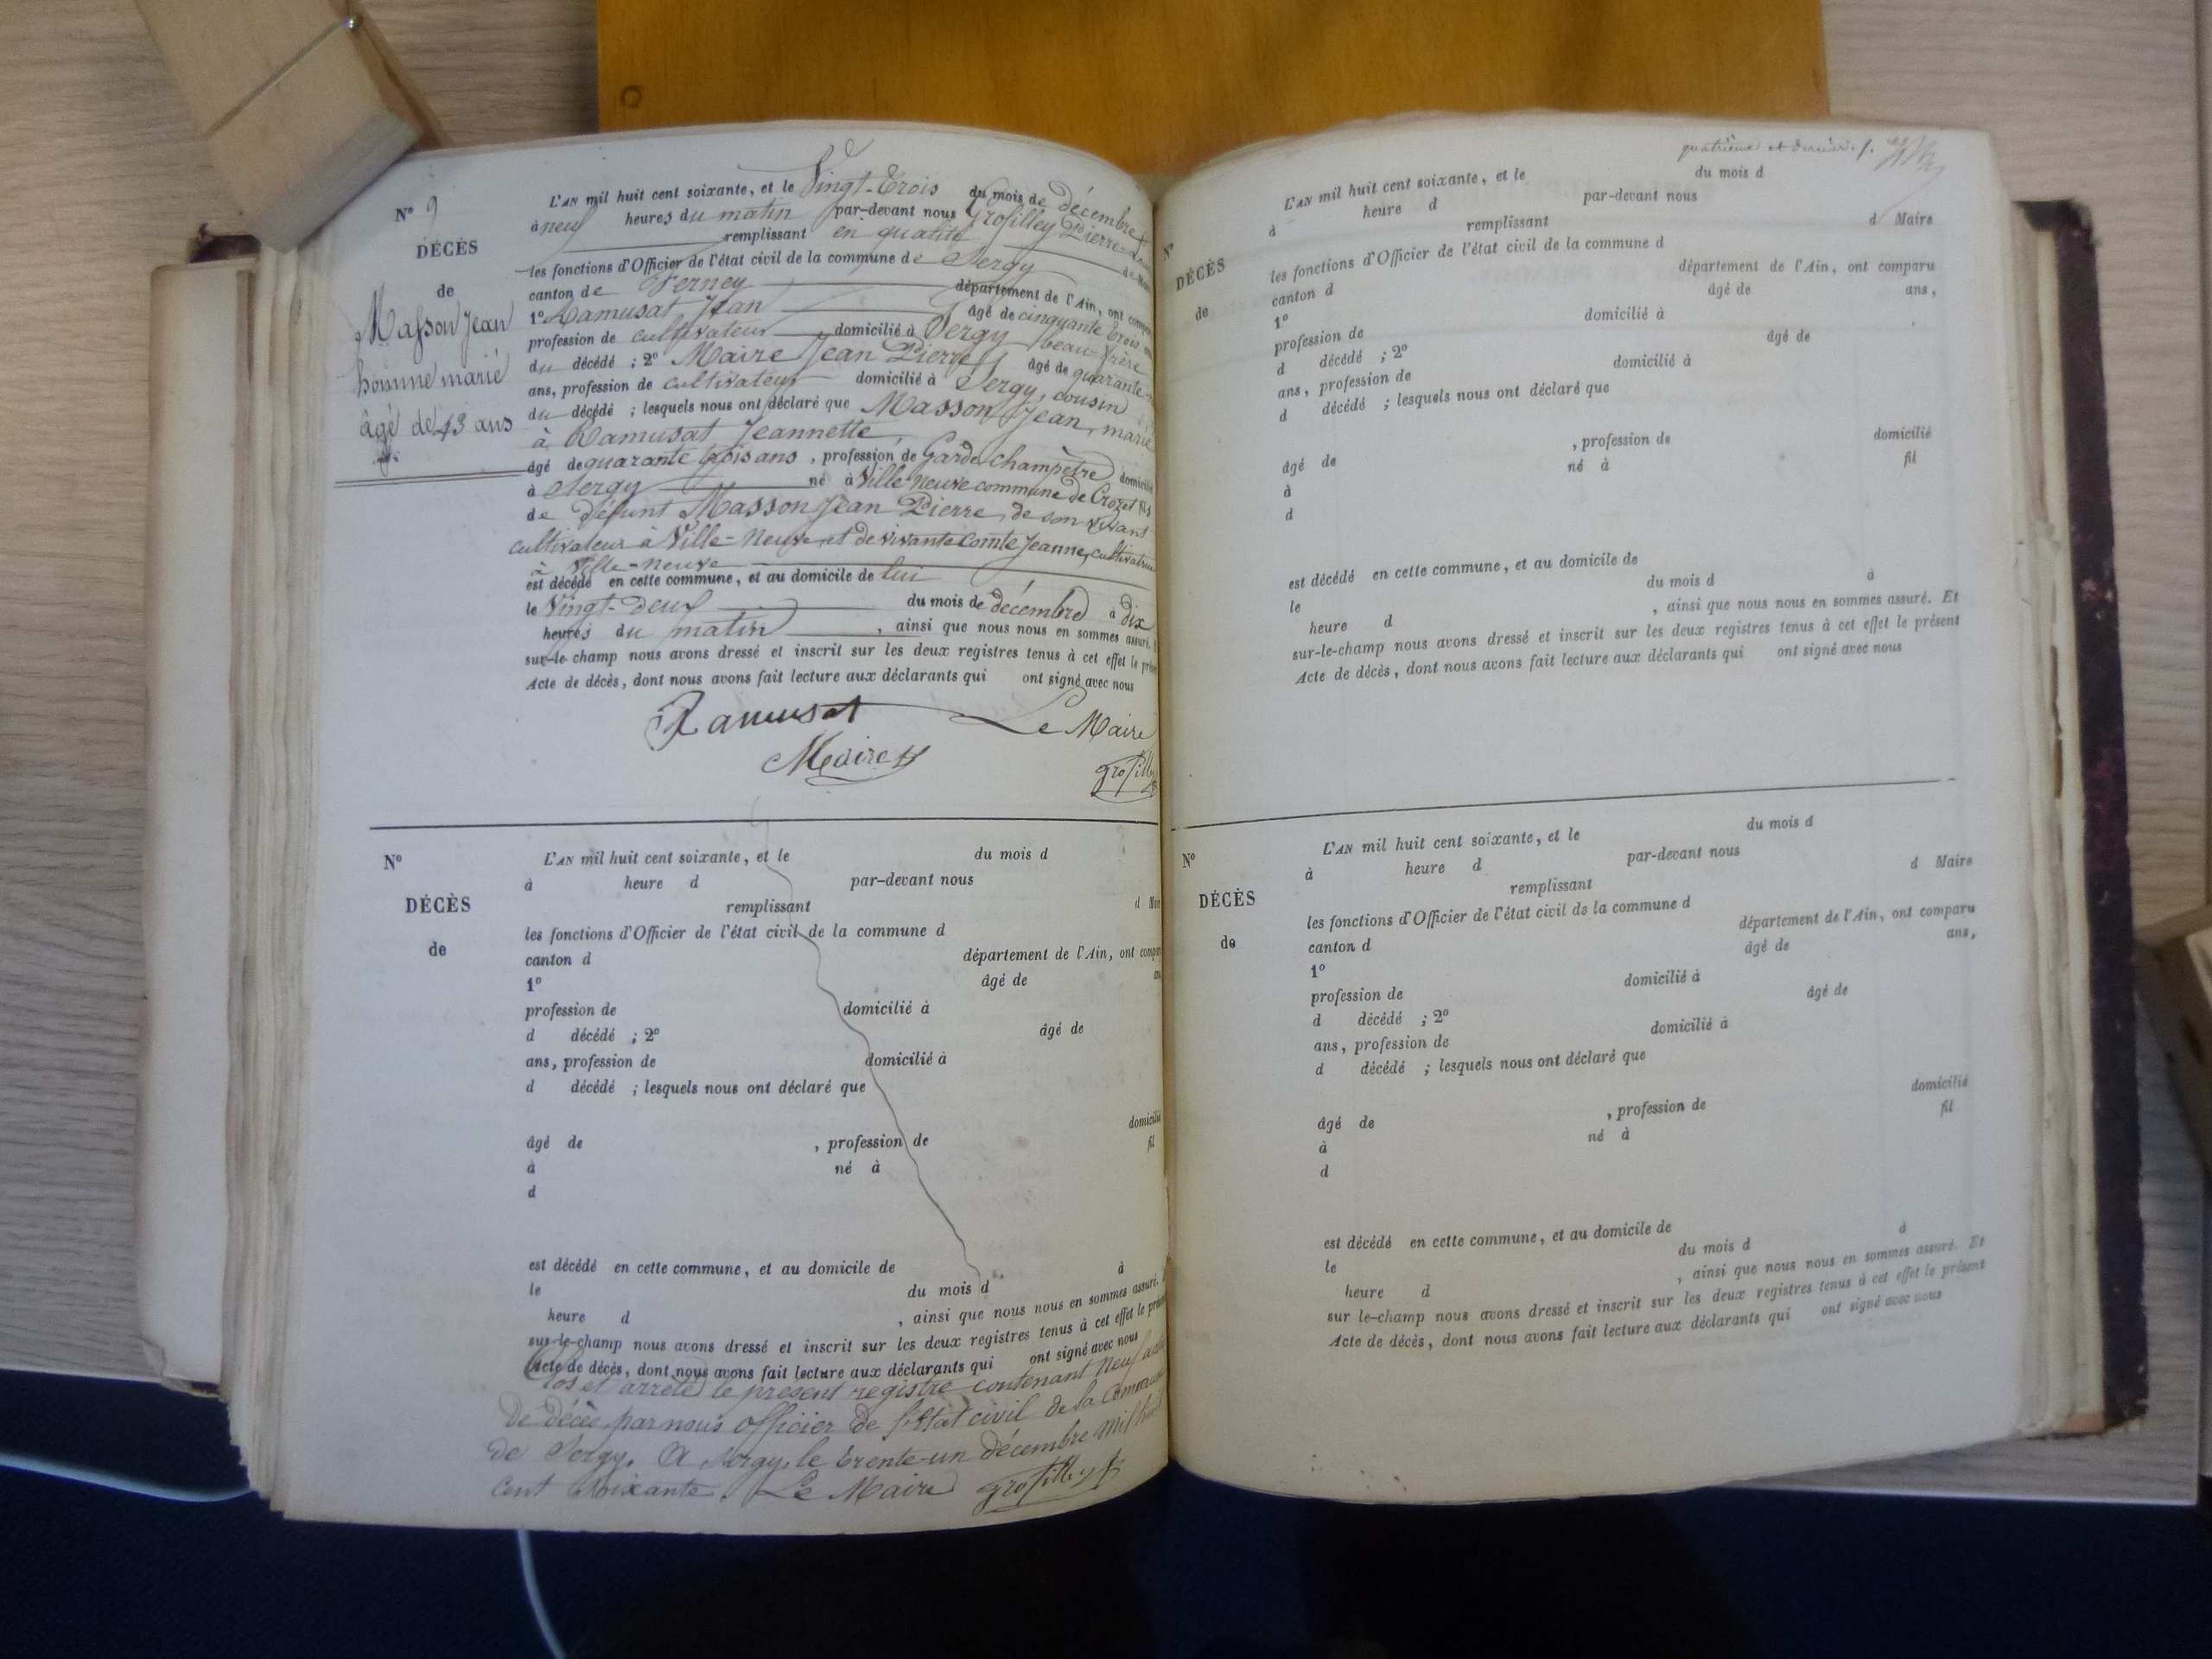 N° 9
DÉCÈS
de
Masson Jean
homme marié
âgé de 43 ans
L'AN mil huit cent soixante, et le Vingt-trois du mois de décembre
à neuf heures du matin par-devant nous Grosilley Pierre
remplissant en qualité de
les fonctions d'Officier de l'état civil de la commune de Sergy
canton de Ferney département de l'Ain, ont
1° Ramusat Jean âgé de cinquante trois
profession de cultivateur domicilié à Sergy beau-frère
du décédé ; 2° Maire Jean Pierre âgé de quarante
ans, profession de cultivateur domicilié à Sergy, cousin
du décédé ; lesquels nous ont déclaré que Masson Jean, marié
à Ramusat Jeannette,
âgé de quarante trois ans, profession de Garde champêtre domicilié
à Sergy né à Ville-neuve commune de Crozet fils
de défunt Masson Jean Pierre, de son vivant
cultivateur à Ville-Neuve et de vivante Comte Jeanne, cultivatrice
à Ville-neuve
est décédé en cette commune, et au domicile de lui
le Vingt-deux du mois de décembre à dix
heures du matin, ainsi que nous nous en sommes assuré.
sur-le-champ nous avons dressé et inscrit sur les deux registres tenus à cet effet le
Acte de décès, dont nous avons fait lecture aux déclarants qui ont signé avec nous
Ramusat Le Maire
Maire
Grosilley
N°
DÉCÈS
de
L'AN mil huit cent soixante, et le du mois d
à heure d par-devant nous
remplissant d
les fonctions d'Officier de l'état civil de la commune d
canton d département de l'Ain, ont
1° âgé de
profession de domicilié à
d décédé ; 2° âgé de
ans, profession de domicilié à
d décédé ; lesquels nous ont déclaré que
domicilié
âgé de , profession de fil
à né à
d
est décédé en cette commune, et au domicile de
le du mois d à
heure d , ainsi que nous nous en sommes assuré.
sur-le-champ nous avons dressé et inscrit sur les deux registres tenus à cet effet le
Acte de décès, dont nous avons fait lecture aux déclarants qui ont signé avec nous
Clos et arrêté le présent registre contenant neuf
de décès par nous officier de l'état civil de la Commune
de Sergy. A Sergy, le trente-un décembre mil huit
cent soixante. Le Maire Grosilley
quatrième et dernier f.
N°
DÉCÈS
de
L'AN mil huit cent soixante, et le du mois d
à heure d par-devant nous
remplissant d Maire
les fonctions d'Officier de l'état civil de la commune d
canton d département de l'Ain, ont comparu
1° âgé de ans,
profession de domicilié à
d décédé ; 2° âgé de
ans, profession de domicilié à
d décédé ; lesquels nous ont déclaré que
âgé de , profession de domicilié
à né à fil
d
est décédé en cette commune, et au domicile de
le du mois d à
heure d , ainsi que nous nous en sommes assuré. Et
sur-le-champ nous avons dressé et inscrit sur les deux registres tenus à cet effet le présent
Acte de décès, dont nous avons fait lecture aux déclarants qui ont signé avec nous
N°
DÉCÈS
de
L'AN mil huit cent soixante, et le du mois d
à heure d par-devant nous
remplissant d Maire
les fonctions d'Officier de l'état civil de la commune d
canton d département de l'Ain, ont comparu
1° âgé de ans,
profession de domicilié à
d décédé ; 2° âgé de
ans, profession de domicilié à
d décédé ; lesquels nous ont déclaré que
âgé de , profession de domicilié
à né à fil
d
est décédé en cette commune, et au domicile de
le du mois d à
heure d , ainsi que nous nous en sommes assuré. Et
sur le-champ nous avons dressé et inscrit sur les deux registres tenus à cet effet le présent
Acte de décès, dont nous avons fait lecture aux déclarants qui ont signé avec nous